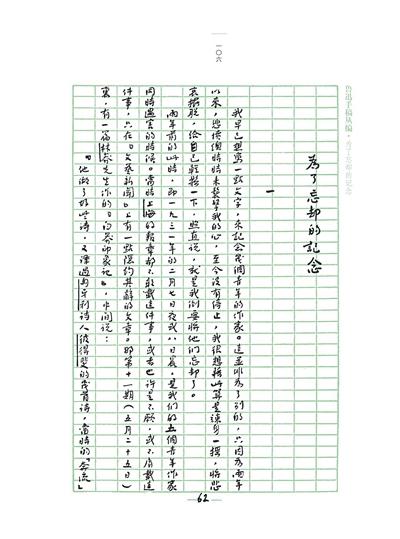 鲁迅手稿丛编·为了忘却的记念
為了忘却的記念
一
我早已想寫一點文字,来記念幾個青年的作家。這並非為了别的,只因為兩年
以来,悲憤總時時来襲擊我的心,至今没有停止,我很想藉此算是竦身一摇,將悲
哀擺脱,給自己輕鬆一下,照直說,就是我倒要將他們忘却了。
兩年前的此時,即一九三一年的二月七日夜或八日晨,是我們的五個青年作家
同時遇害的時候。當時上海的報章都不敢載這件事,或者也許是不願,或不屑載這
件事,只在「文藝新聞」上有一點隱約其辭的文章。那第十一期(五月二十五日)
裏,有一篇林莽先生作的「白莽印象記」,中間說:
「他做了好些詩,又譯過匈牙利詩人彼得斐的幾首詩,當時的「奔流」
一〇六
62